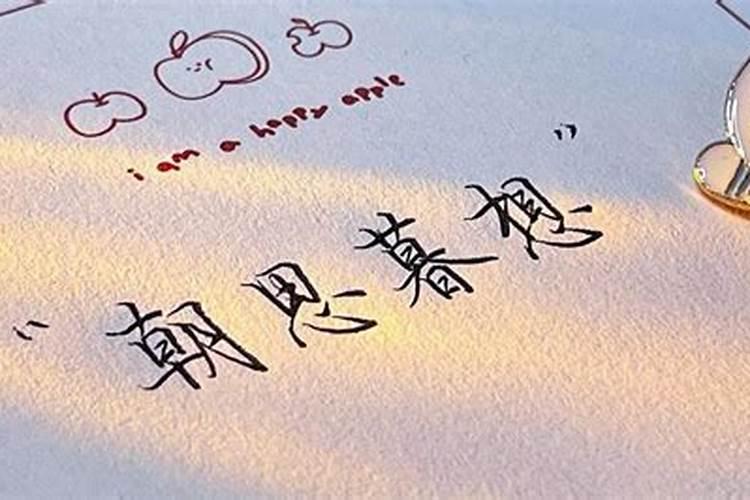 i am a happy apple
"朝思暮想"